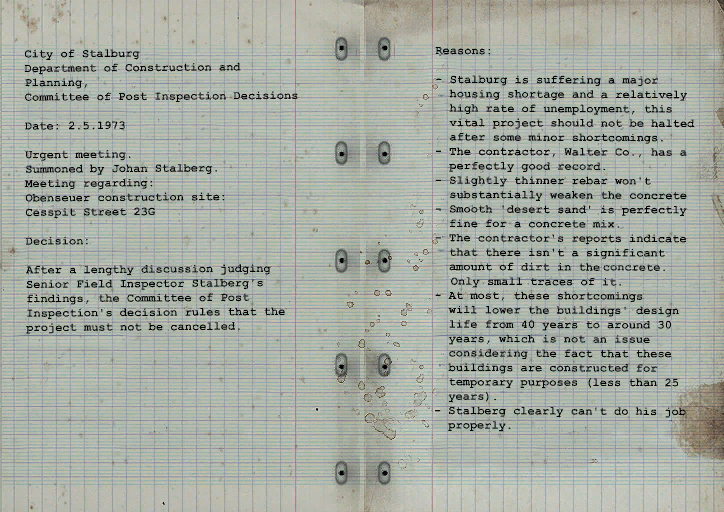 City of Stalburg
Department of Construction and
Planning,
Committee of Post Inspection Decisions
Date: 2.5.1973
Urgent meeting.
Summoned by Johan Stalberg.
Meeting regarding:
Obenseuer construction site:
Cesspit Street 23G
Decision:
After a lengthy discussion judging
Senior Field Inspector Stalberg's
findings, the Committee of Post
Inspection's decision rules that the
project must not be cancelled.
Reasons:
- Stalburg is suffering a major
housing shortage and a relatively
high rate of unemployment, this
vital project should not be halted
after some minor shortcomings.
- The contractor, Walter Co., has a
perfectly good record.
- Slightly thinner rebar won't
substantially weaken the concrete
- Smooth 'desert sand' is perfectly
fine for a concrete mix.
- The contractor's reports indicate
that there isn't a significant
amount of dirt in the concrete.
Only small traces of it.
- At most, these shortcomings
will lower the buildings' design
life from 40 years to around 30
years, which is not an issue
considering the fact that these
buildings are constructed for
temporary purposes (less than 25
years).
- Stalberg clearly can't do his job
properly.